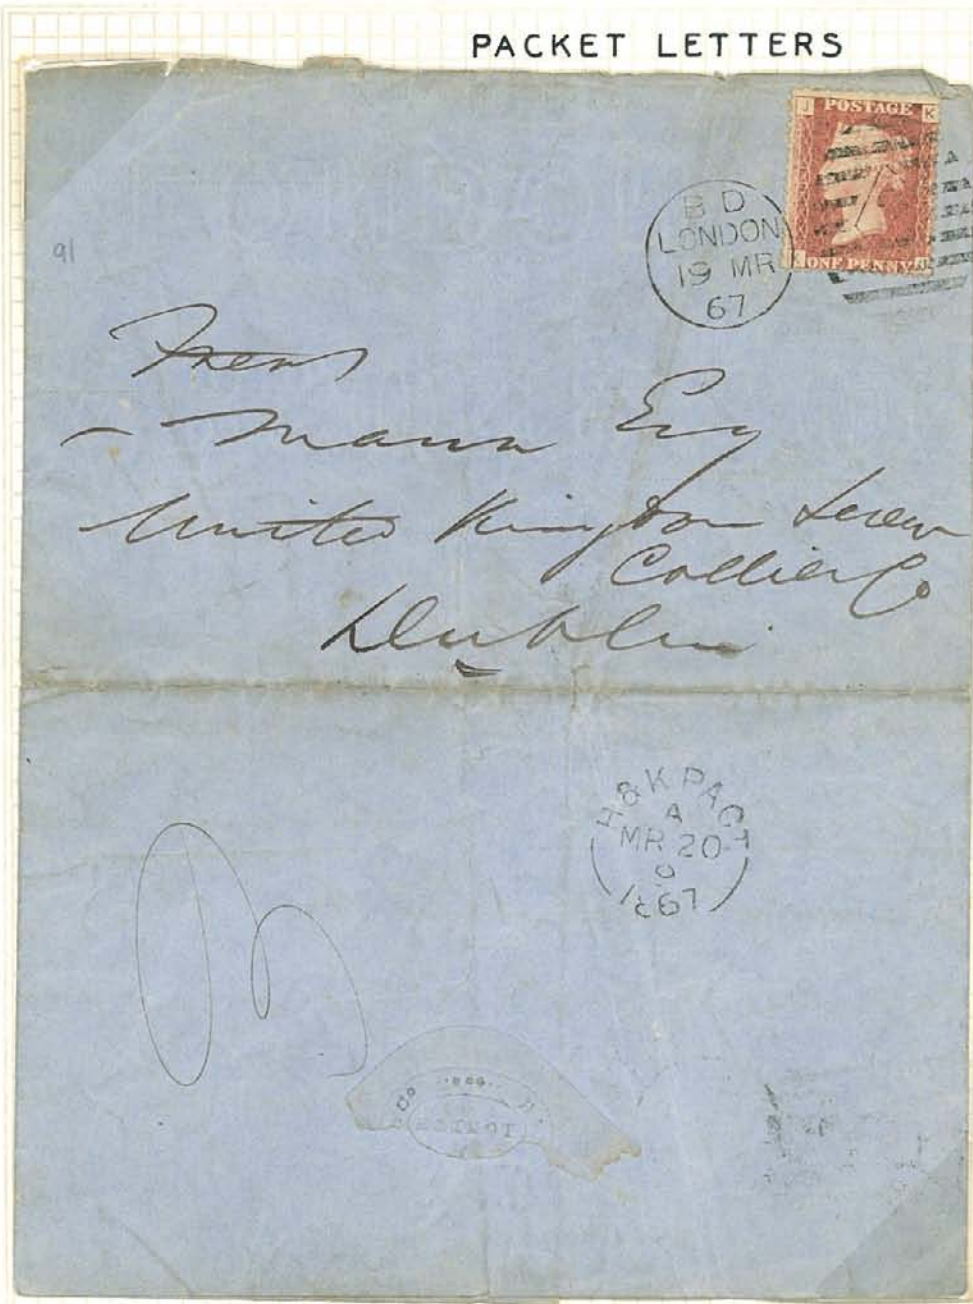 PACKET LETTERS
J POSTAGE K
ONE PENNY
B D
LONDON
19 MR
67
91
Mann Esq
United Kingdom Screw
Collier Co
Dublin
H & K PACT
A
MR 20
1867